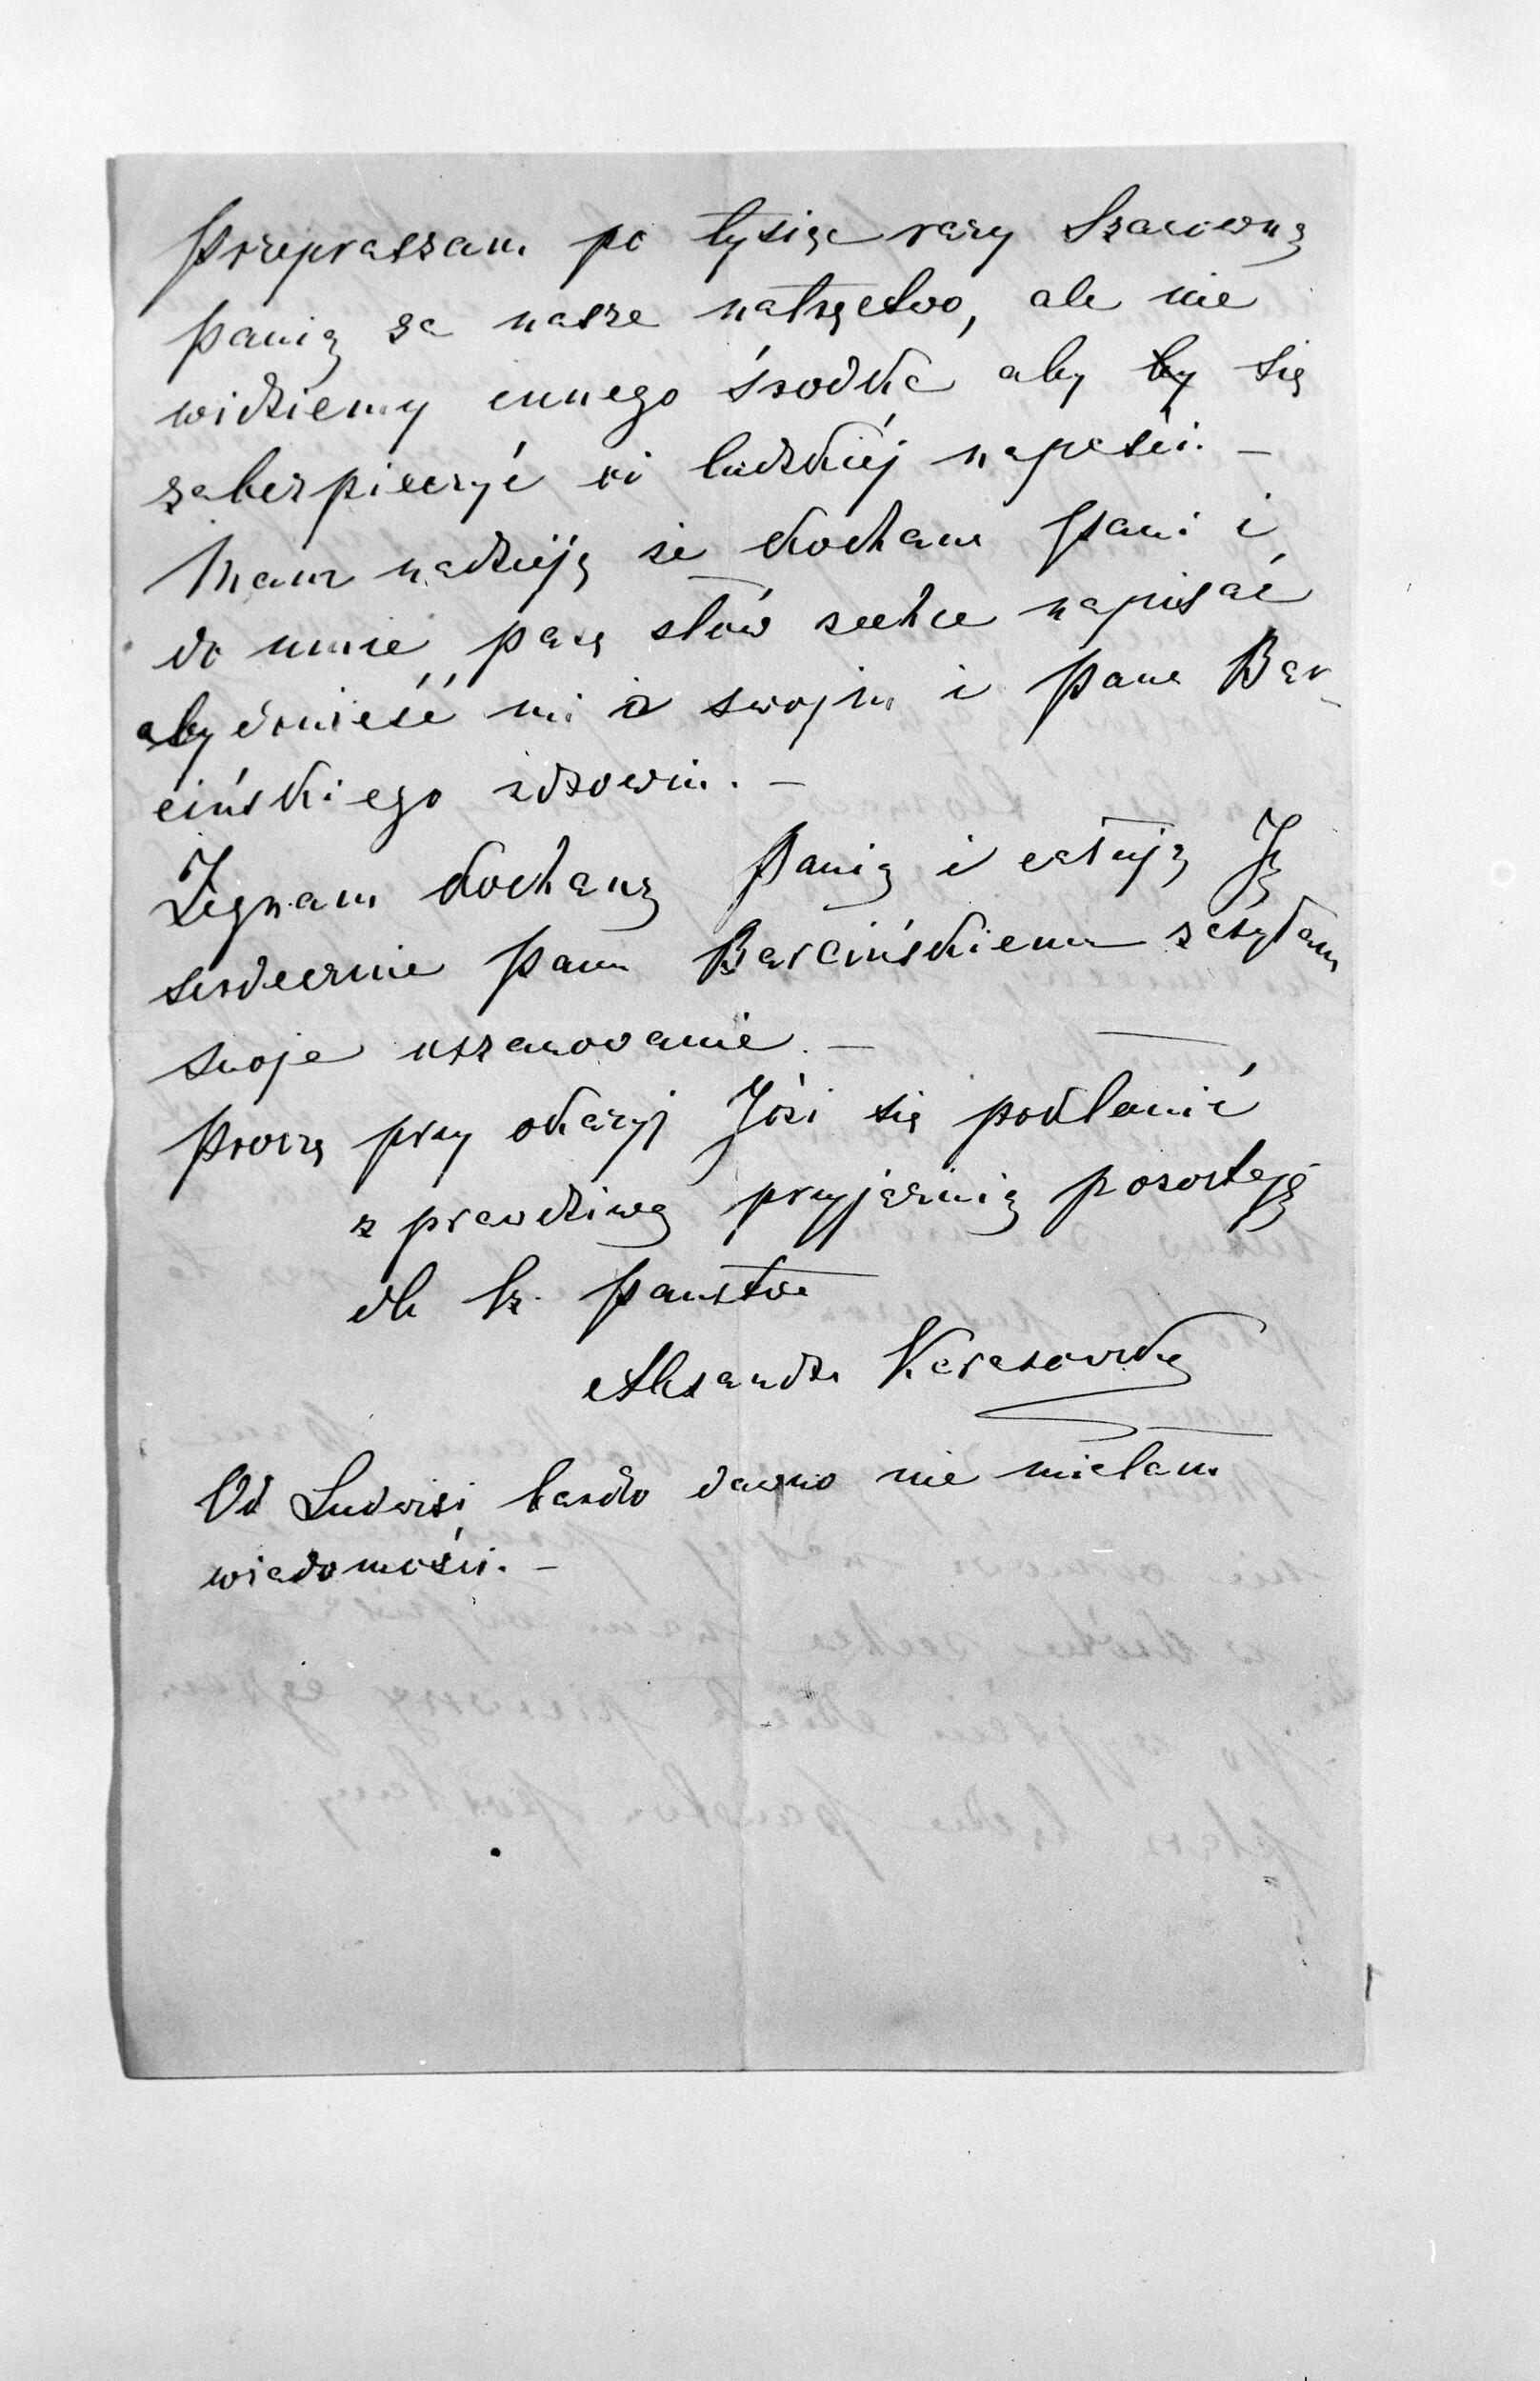 Przepraszam po tysiąc razy Szacowną
Panią za nasze natręctwo, ale nie
widziemy innego środka aby by się
zabezpieczyć od ludzkiéj napaści. —
Mam nadzieję że kochana Pani i
do mnie parę słów zechce napisać
aby donieść mi o swojm i Pana Bar-
cińskiego zdrowiu. —
Żegnam kochaną Panią i całuję Ją
serdecznie Panu Barcińskiemu zasyłam
swoje uszanowanie. —
Proszę przy okazyj Józi się pokłonić
z prawdziwą przyjaźnią pozostaję
dla Sz. Państwa
Aleksandra Karasowska
Od Ludwisi bardzo dawno nie miałam
wiadomości. —